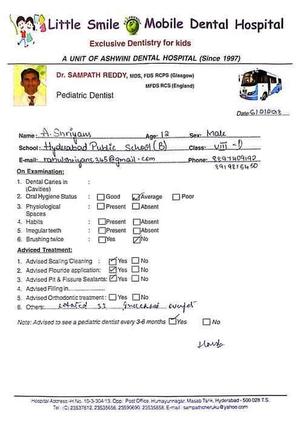 Little Smile Mobile Dental Hospital
Exclusive Dentistry for kids
A UNIT OF ASHWINI DENTAL HOSPITAL (Since 1997)
Dr. SAMPATH REDDY, MDS, FDS RCPS (Glasgow)
MFDS RCS (England)
Pediatric Dentist
Date:
Name: A. Shriyans Age: 12 Sex: Male
School: Hyderabad Public School (B) Class: VIII - D
E-mail:
On Examination:
1. Dental Caries in :
(Cavities)
2. Oral Hygiene Status : Good Average Poor
3. Physiological : Present Absent
Spaces
4. Habits : Present Absent
5. Irregular teeth : Present Absent
6. Brushing twice : Yes No
Adviced Treatment:
1. Advised Scaling Cleaning : Yes No
2. Advised Flouride application: Yes No
3. Advised Pit & Fissure Sealants: Yes No
4. Advised Filling in
5. Advised Orthodontic treatment : Yes No
6. Others:
Note: Advised to see a pediatric dentist every 3-6 months Yes No
Hospital Address:-H No. 10-3-304/13, Opp. Post Office, Humayunnagar, Masab Tank, Hyderabad - 500 028 T.S.